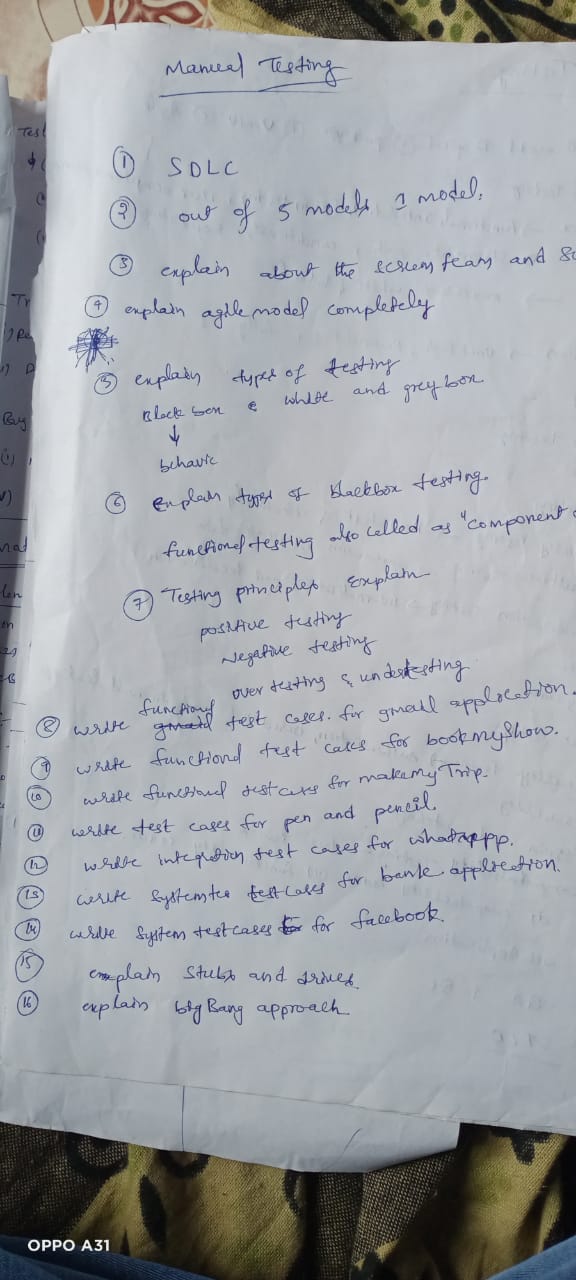 Manual Testing
① SDLC
② out of 5 models 1 model.
③ explain about the screem feam and Sc
④ explain agile model completely
⑤ explain types of testing
Black box & white and grey box
↓
behavic
⑥ Explain types of blackbox testing.
functional testing also called as "component
⑦ Testing principles Explain
positive testing
Negative testing
over testing & undertesting
⑧ write functional test cases. for gmail applocation.
⑨ write functional test cases for bookmyShow.
⑩ write functional test cases for makemyTrip.
⑪ write test cases for pen and pencil.
⑫ write integration test cases for whatsappp.
⑬ write System tes test cases for bank application.
⑭ write System test cases for facebook.
⑮ explain Stubs and drives.
⑯ explain big Bang approach.
Test
Tr
OPPO A31